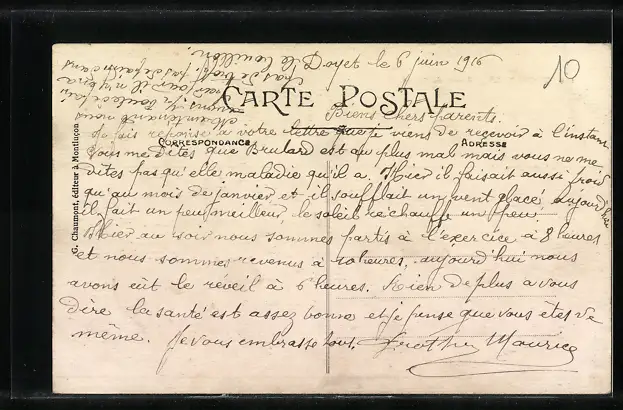 Doyet le 6 juin 1916
10
CARTE POSTALE
Biens chers parents.
Je fais réponse à votre lettre que je viens de recevoir à l'instant
CORRESPONDANCE
ADRESSE
Vous me dites que Brulard est au plus mal mais vous ne me
dites pas qu'elle maladie qu'il a. Hier il faisait aussi froid
qu'au mois de janvier et il soufflait un vent glacé aujourd'hui
il fait un peu meilleur le soleil rechauffe un peu.
Hier au soir nous sommes partis à l'exercice à 8 heures
et nous sommes revenus à 10 heures. aujourd'hui nous
avons eût le réveil à 6 heures. Rien de plus a vous
dire la santé est assez bonne et je pense que vous êtes de
même. Je vous embrasse tous. Maurice
G. Chaumont, éditeur à Montluçon
Maintenant nous
le bouillon.